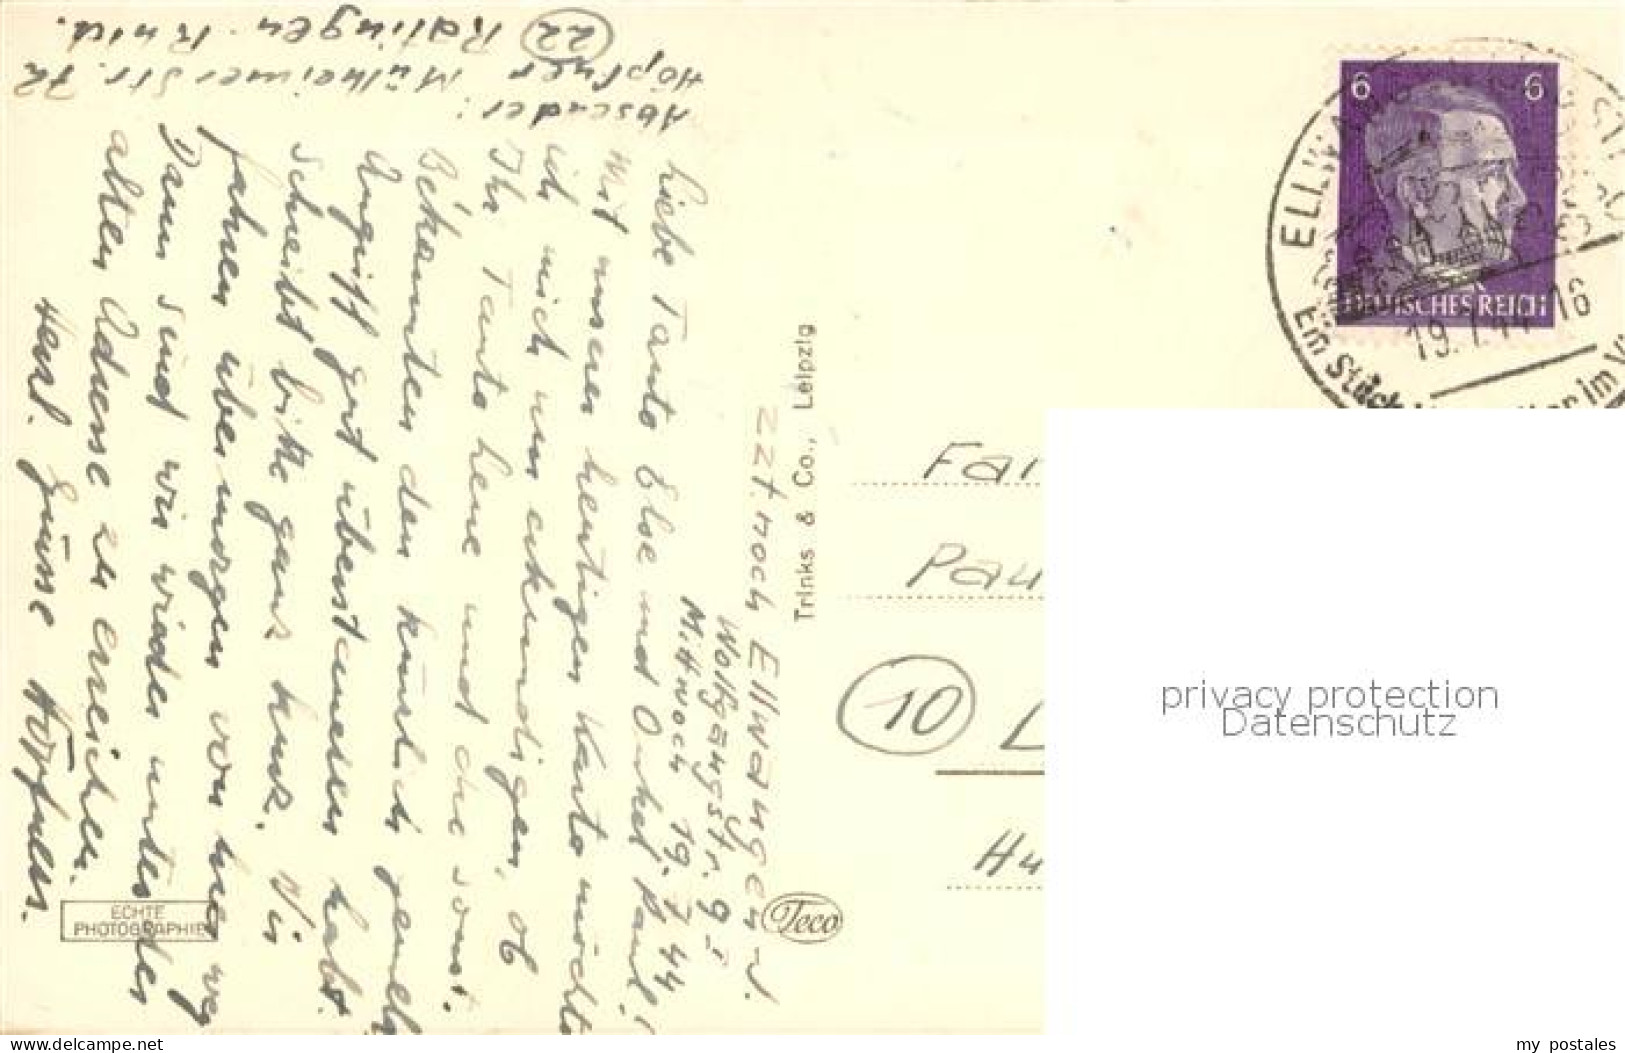 Absender:
Höpfner Mülheimer Str. 72
(22) Ratingen-Rhld.
z Zt. noch Ellwangen-J.
Wolfgangstr. 9 I
Mittwoch 19. 7. 44
Liebe Tante Else und Onkel Paul!
Mit unserer heutigen Karte möchte
ich mich nur erkundigen, ob
Ihr Tante Lene und die sonst.
Bekannten den kürzlich
Angriff gut überstanden habt.
Schreibt bitte ganz kurz. Wir
fahren übermorgen von hier weg
Dann sind wir wieder unter der
alten Adresse zu erreichen.
Herzl. Grüsse Höpfners.
ECHTE
PHOTOGRAPHIE
Trinks & Co., Leipzig
Teco
6 6
DEUTSCHES REICH
ELLWA
19.7.44-16
Ein Stück
im
Fa
Pau
(10) L
Hu
privacy protection
Datenschutz
www.delcampe.net
my_postales